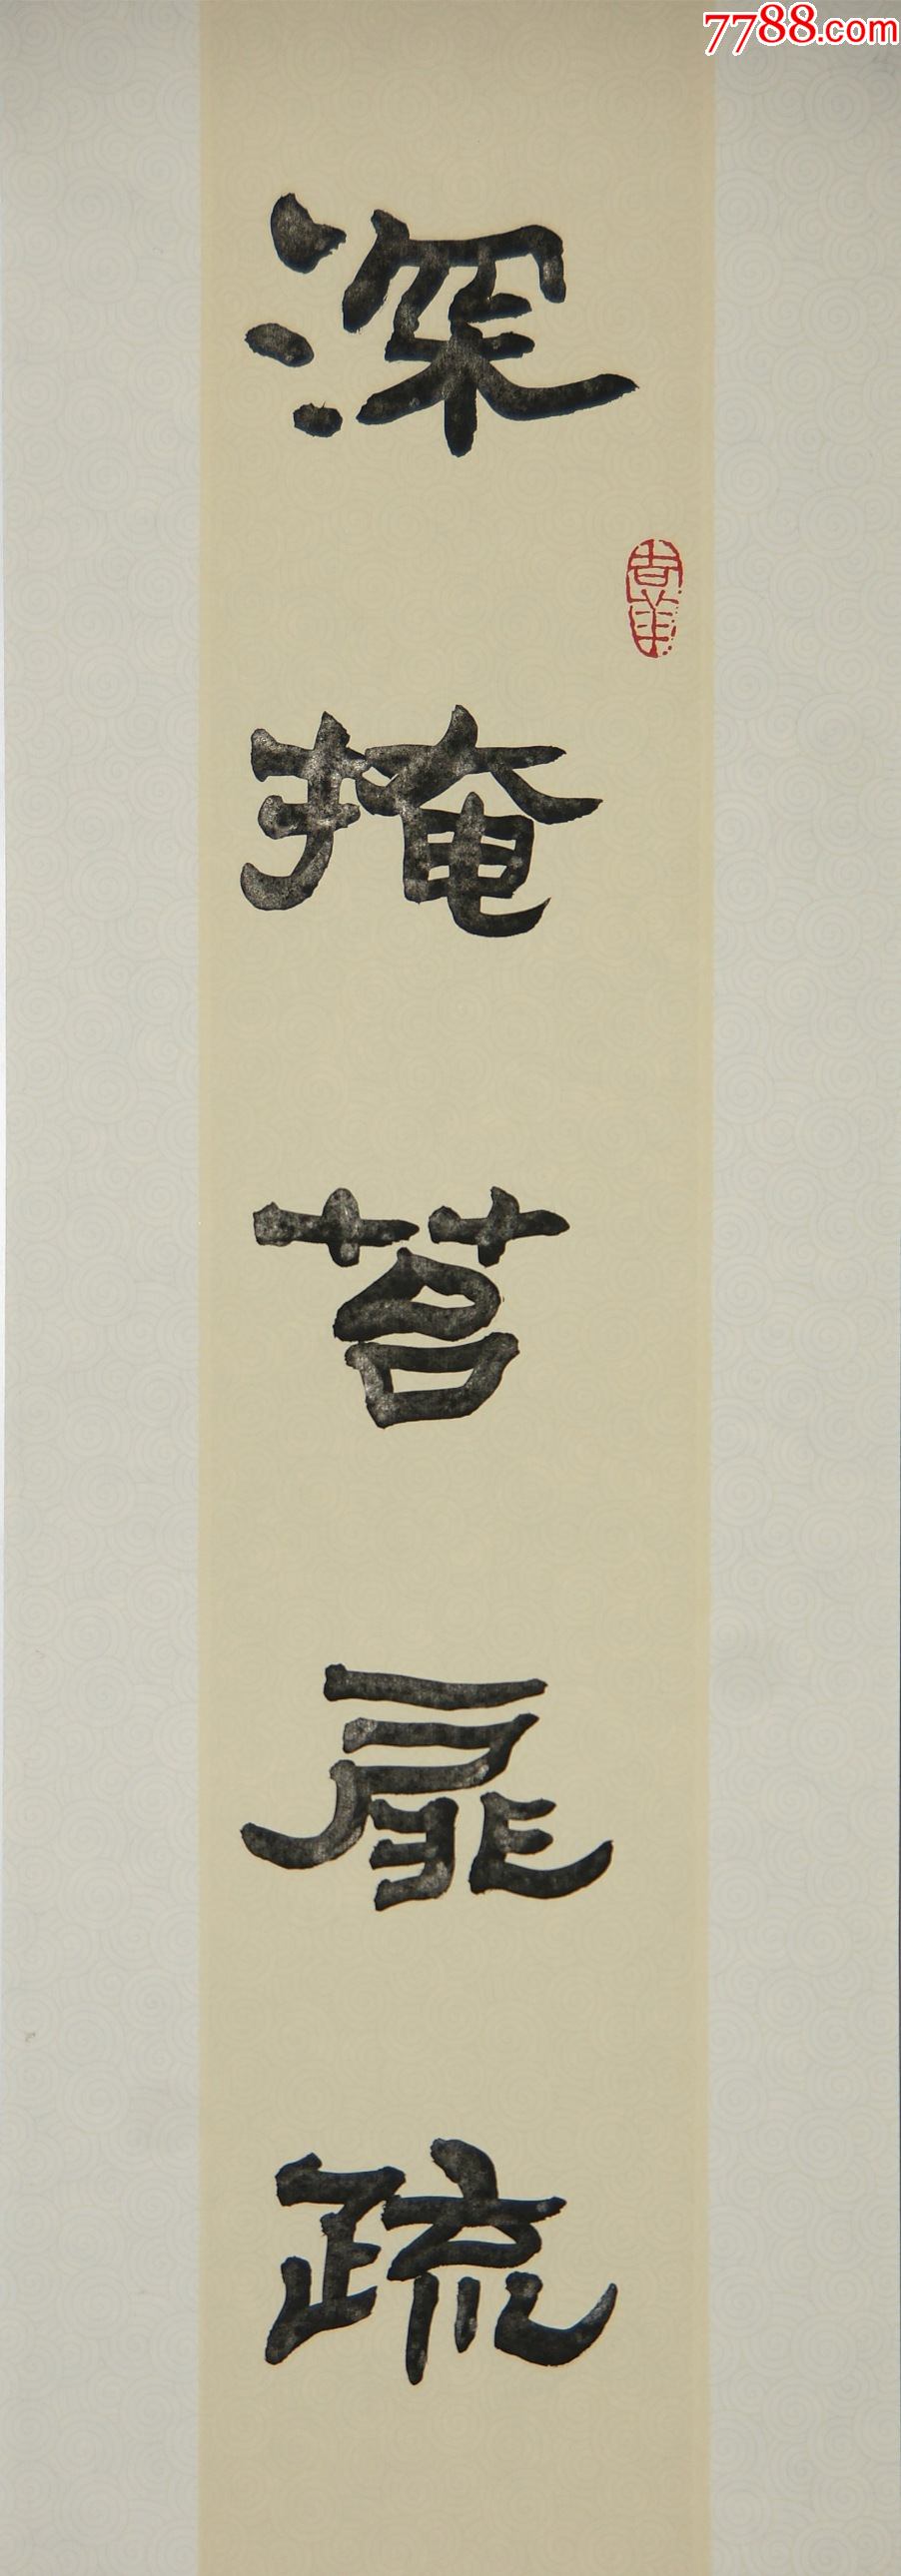 7788.com
深掩苔扉疏